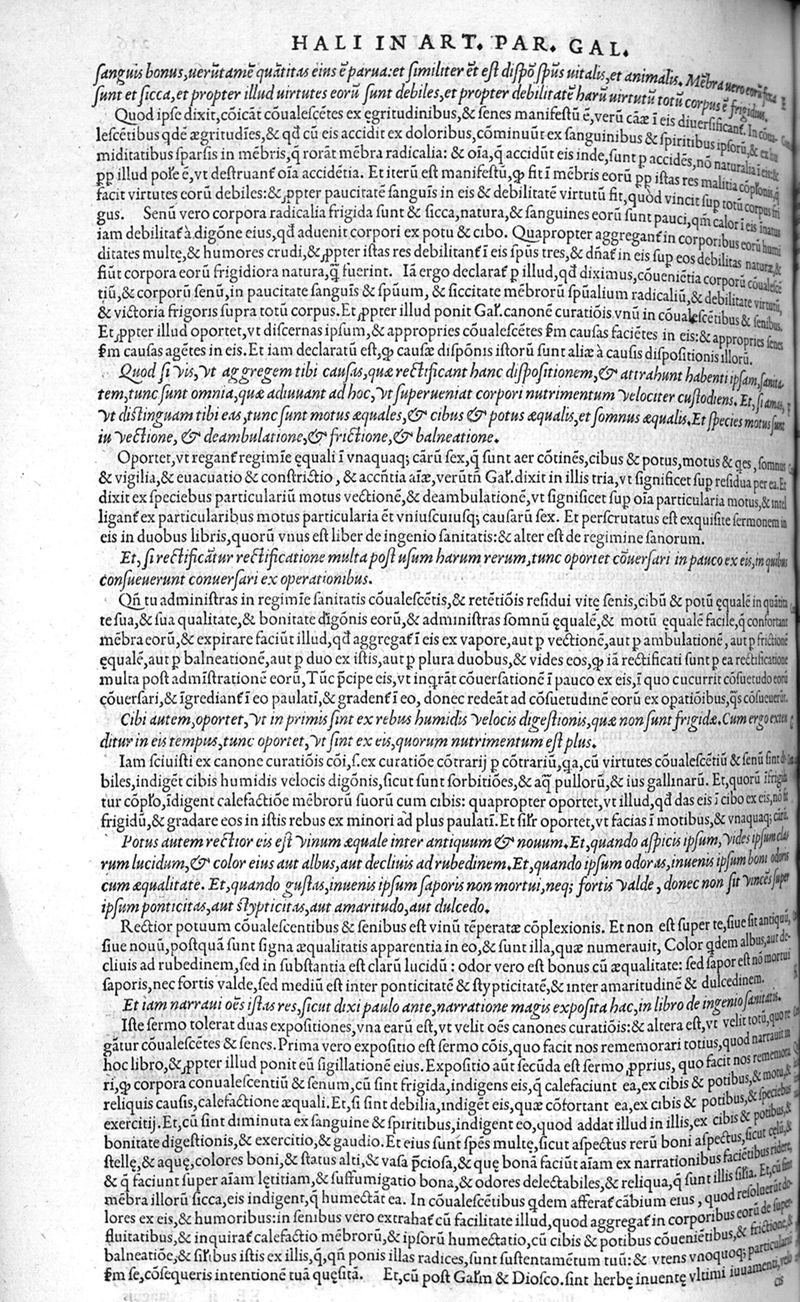 HALI IN ART. PAR. GAL.
sanguis bonus, uerũtamẽ quãtitas eius ẽ parua: et similiter ẽt est dispõ spũs uitalis, et animalis. Mẽbra uero eorũ
sunt et sicca, et propter illud uirtutes eorũ sunt debiles, et propter debilitatẽ harũ uirtutũ totũ corpus ẽ frigidius,
Quod ipse dixit, cõicãt cõualescẽtes ex ęgritudinibus, & senes manifestũ ẽ, verũ cãæ ĩ eis diuersificant. In
lescẽtibus qdẽ ægritudĩes, & qđ cũ eis accidit ex doloribus, cõminuũt ex sanguinibus & spiritibus ipsorũ, &
miditatibus sparsis in mẽbris, q̃ rorãt mẽbra radicalia: & oĩa, q̃ accidũt eis inde, sunt p accidẽs, nõ naturalia
pp illud poſſe ẽ, vt destruant oĩa accidẽtia. Et iterũ est manifestũ, ꝙ fit ĩ mẽbris eorũ pp istas res malitia cõplonis,
facit virtutes eorũ debiles: & ꝓpter paucitatẽ sanguĩs in eis & debilitatẽ virtutũ fit, quòd vincit sup totũ corpus fri
gus. Senũ vero corpora radicalia frigida sunt & sicca, natura, & sanguines eorũ sunt pauci, qm̃ calor ĩ eis
iam debilitat̃ à digõne eius, qđ aduenit corpori ex potu & cibo. Quapropter aggregant̃ in corporibus eorũ humi
ditates multę, & humores crudi, & ꝓpter istas res debilitant̃ ĩ eis spũs tres, & dñat̃ in eis sup eos debilitas natura, &
fiũt corpora eorũ frigidiora natura, q̃ fuerint. Iã ergo declarat̃ p illud, qđ diximus, cõueniẽtia corporũ cõualescẽ
tiũ, & corporũ senũ, in paucitate sanguĩs & spũum, & siccitate mẽbrorũ spũalium radicaliũ, & debilitate virtutũ,
& victoria frigoris supra totũ corpus. Et ꝓpter illud ponit Gal̃. canonẽ curatiõis vnũ in cõualescẽtibus & senibus.
Et ꝓpter illud oportet, vt discernas ipsum, & appropries cõualescẽtes ẜm causas faciẽtes in eis: & appropries senes
ẜm causas agẽtes in eis. Et iam declaratũ est, ꝙ causæ dispõnis istorũ sunt aliæ à causis dispositionis illorũ.
Quod si vis, vt aggregem tibi causas, quæ rectificant hanc dispositionem, & attrahunt habenti ipsam, sanita
tem, tunc sunt omnia, quæ adiuuant ad hoc, vt superueniat corpori nutrimentum velociter custodiens. Et, si amas,
vt distinguam tibi eas, tunc sunt motus æquales, & cibus & potus æqualis, et somnus æqualis. Et species motus sunt
iu vectione, & deambulatione, & frictione, & balneatione.
Oportet, vt regant̃ regimĩe ęquali ĩ vnaquaq; cãrũ sex, q̃ sunt aer cõtinẽs, cibus & potus, motus & ques, somnus
& vigilia, & euacuatio & constrictio, & accñtia aĩæ, verũtñ Gal̃. dixit in illis tria, vt significet sup residua per ea. Et
dixit ex speciebus particulariũ motus vectionẽ, & deambulationẽ, vt significet sup oĩa particularia motus, & intel
ligant̃ ex particularibus motus particularia ẽt vniuscuiusq; causarũ sex. Et perscrutatus est exquisite sermonem in
eis in duobus libris, quorũ vnus est liber de ingenio sanitatis: & alter est de regimine sanorum.
Et, si rectificãtur rectificatione multa post usum harum rerum, tunc oportet cõuersari in pauco ex eis, in quibus
consueuerunt conuersari ex operationibus.
Qñ tu administras in regimĩe sanitatis cõualescẽtis, & retẽtiõis residui vitę senis, cibũ & potũ ęqualẽ in quãtita
te sua, & sua qualitate, & bonitate digõnis eorũ, & administras somnũ ęqualẽ, & motũ ęqualẽ facile, q̃ confortant
mẽbra eorũ, & expirare faciũt illud, qđ aggregat̃ ĩ eis ex vapore, aut p vectionẽ, aut p ambulationẽ, aut p frictionẽ
ęqualẽ, aut p balneationẽ, aut p duo ex istis, aut p plura duobus, & vides eos, ꝙ iã rectificati sunt p ea rectificatione
multa post admĩstrationẽ eorũ, Tũc p̃cipe eis, vt inq̃rãt cõuersationẽ ĩ pauco ex eis, ĩ quo cucurrit cõsuetudo eorũ
cõuersari, & ĩgrediant̃ ĩ eo paulatĩ, & gradent̃ ĩ eo, donec redeãt ad cõsuetudinẽ eorũ ex opatiõibus, q̃s cõsueuerũt.
Cibi autem, oportet, vt in primis sint ex rebus humidis velocis digestionis, quæ non sunt frigidæ. Cum ergo exten
ditur in eis tempus, tunc oportet, vt sint ex eis, quorum nutrimentum est plus.
Iam sciuisti ex canone curatiõis cõi, s. ex curatiõe cõtrarij p cõtrariũ, qa, cũ virtutes cõualescẽtiũ & senũ sint de
biles, indigẽt cibis humidis velocis digõnis, sicut sunt sorbitiões, & aq̃ pullorũ, & ius gallinarũ. Et, quorũ ĩfrigida
tur cõplo, ĩdigent calefactiõe mẽbrorũ suorũ cum cibis: quapropter oportet, vt illud, qđ das eis ĩ cibo ex eis, nõ sit
frigidũ, & gradare eos in istis rebus ex minori ad plus paulatĩ. Et sil̃r oportet, vt facias ĩ motibus, & vnaquaq; cãrũ.
Potus autem rectior eis est vinum æquale inter antiquum & nouum. Et, quando aspicis ipsum, vides ipsum cla
rum lucidum, & color eius aut albus, aut decliuis ad rubedinem. Et, quando ipsum odoras, inuenis ipsum boni odoris
cum æqualitate. Et, quando gustas, inuenis ipsum saporis non mortui, neq; fortis valde, donec non sit vincẽs super
ipsum ponticitas, aut stypticitas, aut amaritudo, aut dulcedo.
Rectior potuum cõualescentibus & senibus est vinũ tẽperatæ cõplexionis. Et non est super te, siue sit antiquũ,
siue nouũ, postquã sunt signa æqualitatis apparentia in eo, & sunt illa, quæ numerauit, Color qdem albus, aut de-
cliuis ad rubedinem, sed in substantia est clarũ lucidũ: odor vero est bonus cũ æqualitate: sed sapor est nõ mortui
saporis, nec fortis valde, sed mediũ est inter ponticitatẽ & stypticitatẽ, & inter amaritudinẽ & dulcedinem.
Et iam narraui oẽs istas res, sicut dixi paulo ante, narratione magis exposita hac, in libro de ingenio sanitatis.
Iste sermo tolerat duas expositiones, vna earũ est, vt velit oẽs canones curatiõis: & altera est, vt velit totũ, quo re
gãtur cõualescẽtes & senes. Prima vero expositio est sermo cõis, quo facit nos rememorari totius, quod narrauit in
hoc libro, & ꝓpter illud ponit eũ sigillationẽ eius. Expositio aũt secũda est sermo ꝓprius, quo facit nos rememora
ri, ꝙ corpora conualescentiũ & senum, cũ sint frigida, indigens eis, q̃ calefaciunt ea, ex cibis & potibus, & motu, &
reliquis causis, calefactione æquali. Et, si sint debilia, indigẽt eis, quæ cõfortant ea, ex cibis & potibus, & speciebus
exercitij. Et, cũ sint diminuta ex sanguine & spiritibus, indigent eo, quod addat illud in illis, ex cibis & potibus, &
bonitate digestionis, & exercitio, & gaudio. Et eius sunt spẽs multę, sicut aspectus rerũ boni aspectus, sicut celũ, &
stellę, & aquę, colores boni, & status alti, & vasa p̃ciosa, & quę bonã faciũt aĩam ex narrationibus faciẽtibus ridere,
& q̃ faciunt super aĩam lętitiam, & suffumigatio bona, & odores delectabiles, & reliqua, q̃ sunt illis sil̃ia. Et, cũ sint
mẽbra illorũ sicca, eis indigent, q̃ humectãt ea. In cõualescẽtibus qdem afferat̃ cãbium eius, quod resoluerũt do-
lores ex eis, & humoribus: in senibus vero extrahat̃ cũ facilitate illud, quod aggregat̃ in corporibus eorũ de super
fluitatibus, & inquirat̃ calefactio mẽbrorũ, & ipsorũ humectatio, cũ cibis & potibus cõueniẽtibus, & frictione, &
balneatiõe, & sil̃ibus istis ex illis, q̃, qñ ponis illas radices, sunt sustentamẽtum tuũ: & vtens vnoquoq; particulari
ẜm se, cõsequeris intentionẽ tuã quęsitã. Et, cũ post Galm & Diosco. sint herbę inuentę vltimi iuuamenti,
cis